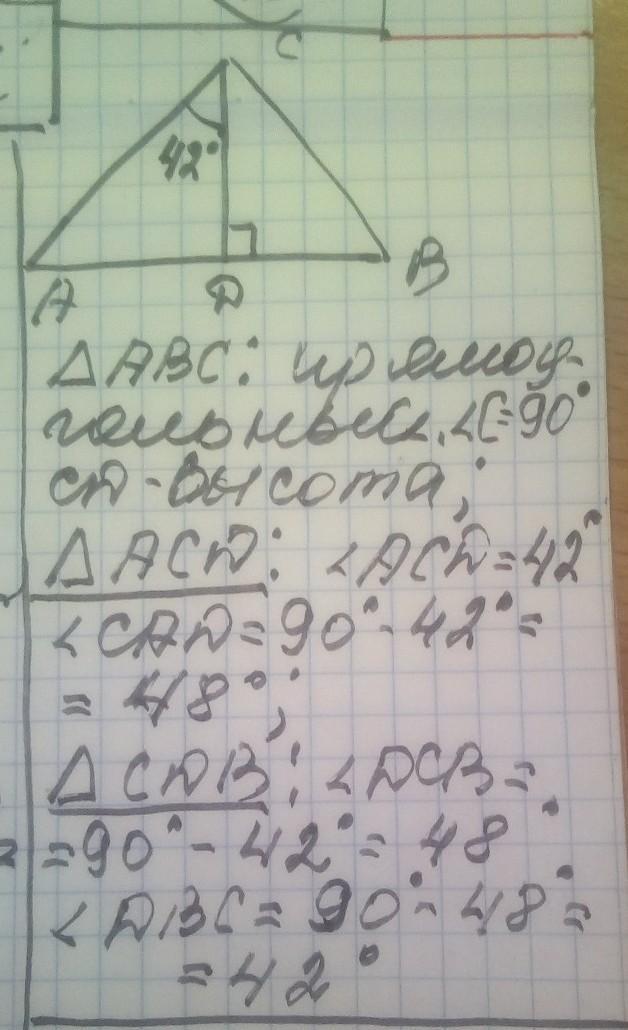 C
42°
A D B
△ABC: прямоу-
гольный. ∠C=90°
CD-высота;
△ACD: ∠ACD=42°
∠CAD=90°-42°=
= 48°;
△CDB: ∠DCB=
=90°-42°=48°
∠DBC=90°-48°=
=42°